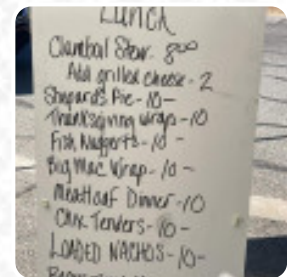 LUNCH
Clamboil Stew - 8⁰⁰
Add grilled cheese - 2
Shepard's Pie - 10 -
Thanksgiving wrap - 10
Fish Nuggets - 10 -
Big Mac Wrap - 10 -
Meatloaf Dinner - 10
Chix Tenders - 10 -
LOADED NACHOS - 10 -